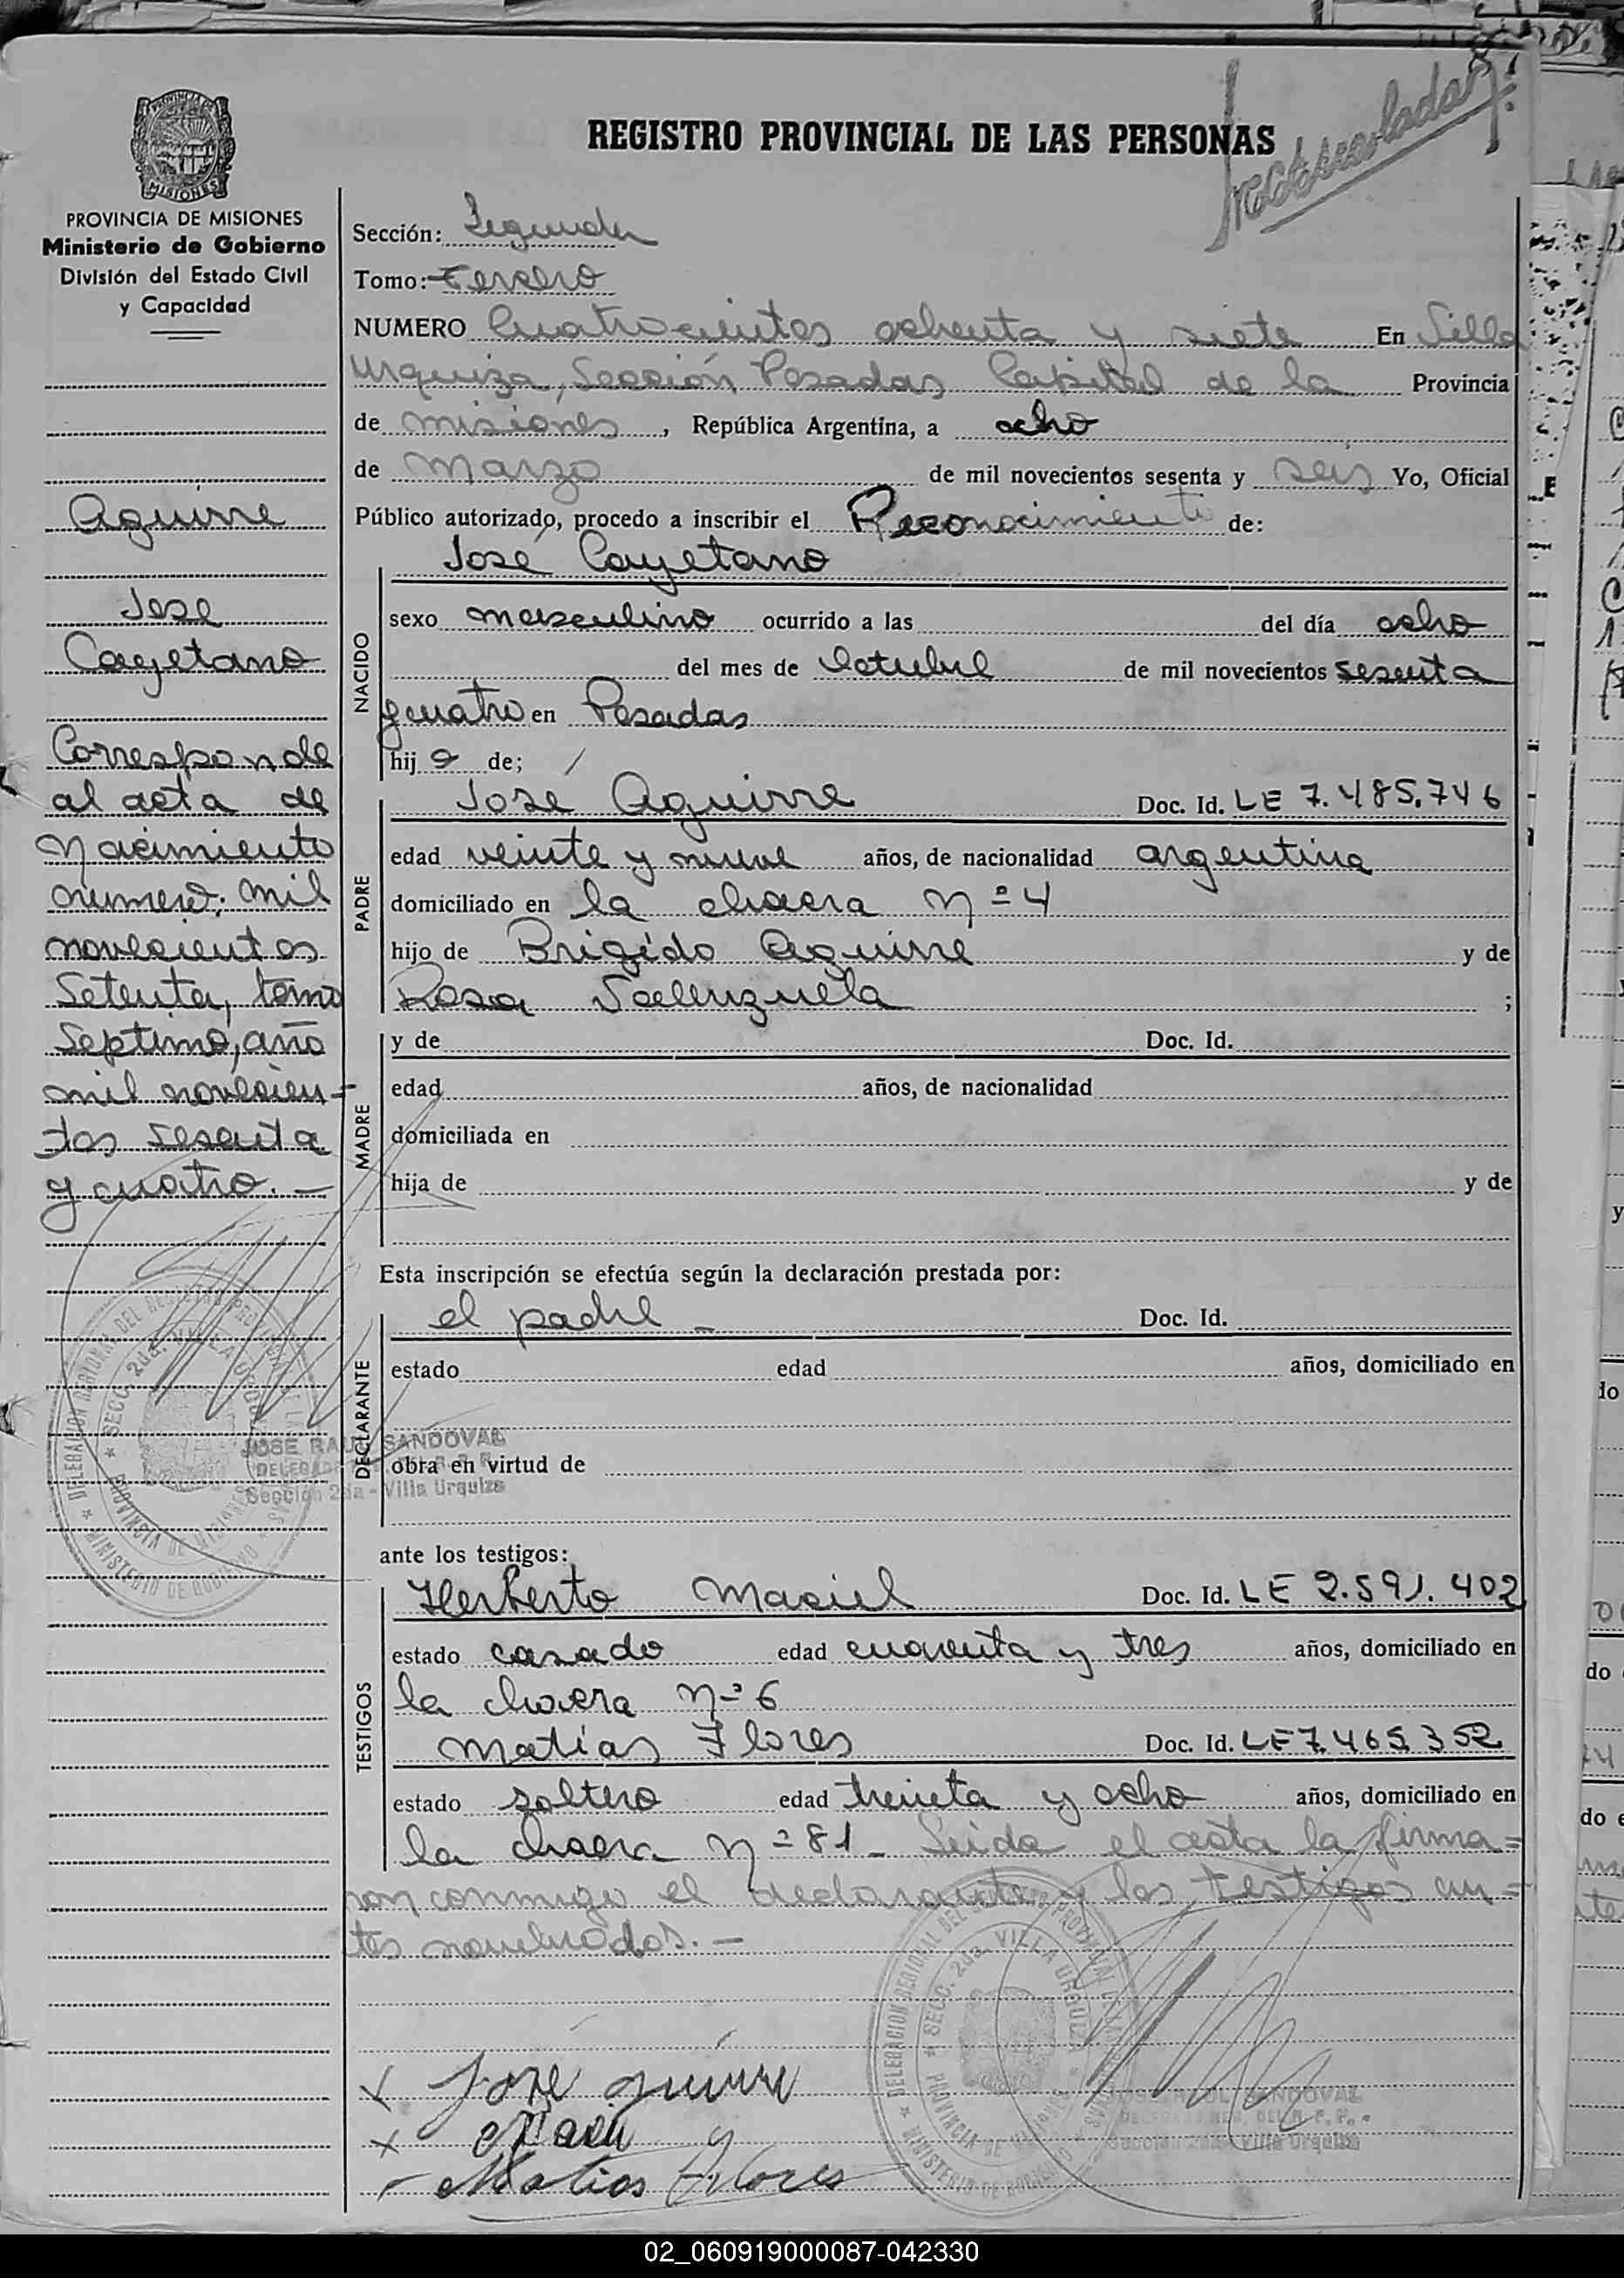 REGISTRO PROVINCIAL DE LAS PERSONAS
MISIONES
PROVINCIA DE MISIONES
Ministerio de Gobierno
División del Estado Civil
y Capacidad
Aguirre
Jose
Cayetano
Corresponde
al acta de
nacimiento
numero: mil
novecientos
Setenta, tomo
Septimo, año
mil novecien=
tos sesenta
y cuatro. —
JOSE RAUL SANDOVAL
Sección 2da - Villa Urquiza
Sección: Segunda
Tomo: Tercero
NUMERO Cuatrocientos ochenta y siete En Villa
Urquiza, Sección Posadas Capital de la Provincia
de misiones, República Argentina, a ocho
de marzo de mil novecientos sesenta y seis Yo, Oficial
Público autorizado, procedo a inscribir el Reconocimiento de:
José Cayetano
NACIDO
sexo masculino ocurrido a las del día ocho
del mes de Octubre de mil novecientos sesenta
y cuatro en Posadas
hij o de;
PADRE
José Aguirre Doc. Id. LE 7.485.746
edad veinte y nueve años, de nacionalidad argentina
domiciliado en la chacra nº 4
hijo de Brigido Aguirre y de
Rosa Valenzuela ;
MADRE
y de Doc. Id.
edad años, de nacionalidad
domiciliada en
hija de y de
Esta inscripción se efectúa según la declaración prestada por:
DECLARANTE
el padre — Doc. Id.
estado edad años, domiciliado en
obra en virtud de
ante los testigos:
TESTIGOS
Herberto Maciel Doc. Id. LE 2.591.402
estado casado edad cuarenta y tres años, domiciliado en
la chacra nº 6
Matías Flores Doc. Id. LE 7.465.352
estado soltero edad treinta y ocho años, domiciliado en
la chacra nº 81 - Leida el acta la firma=
ron conmigo el declarante y los testigos an=
tes nombrados. —
DELEGACION REGIONAL DEL REGISTRO PROVINCIAL DE LAS PERSONAS
SECC. 2da. VILLA URQUIZA
PROVINCIA DE MISIONES
MINISTERIO DE GOBIERNO
Matias Flores
02_060919000087-042330